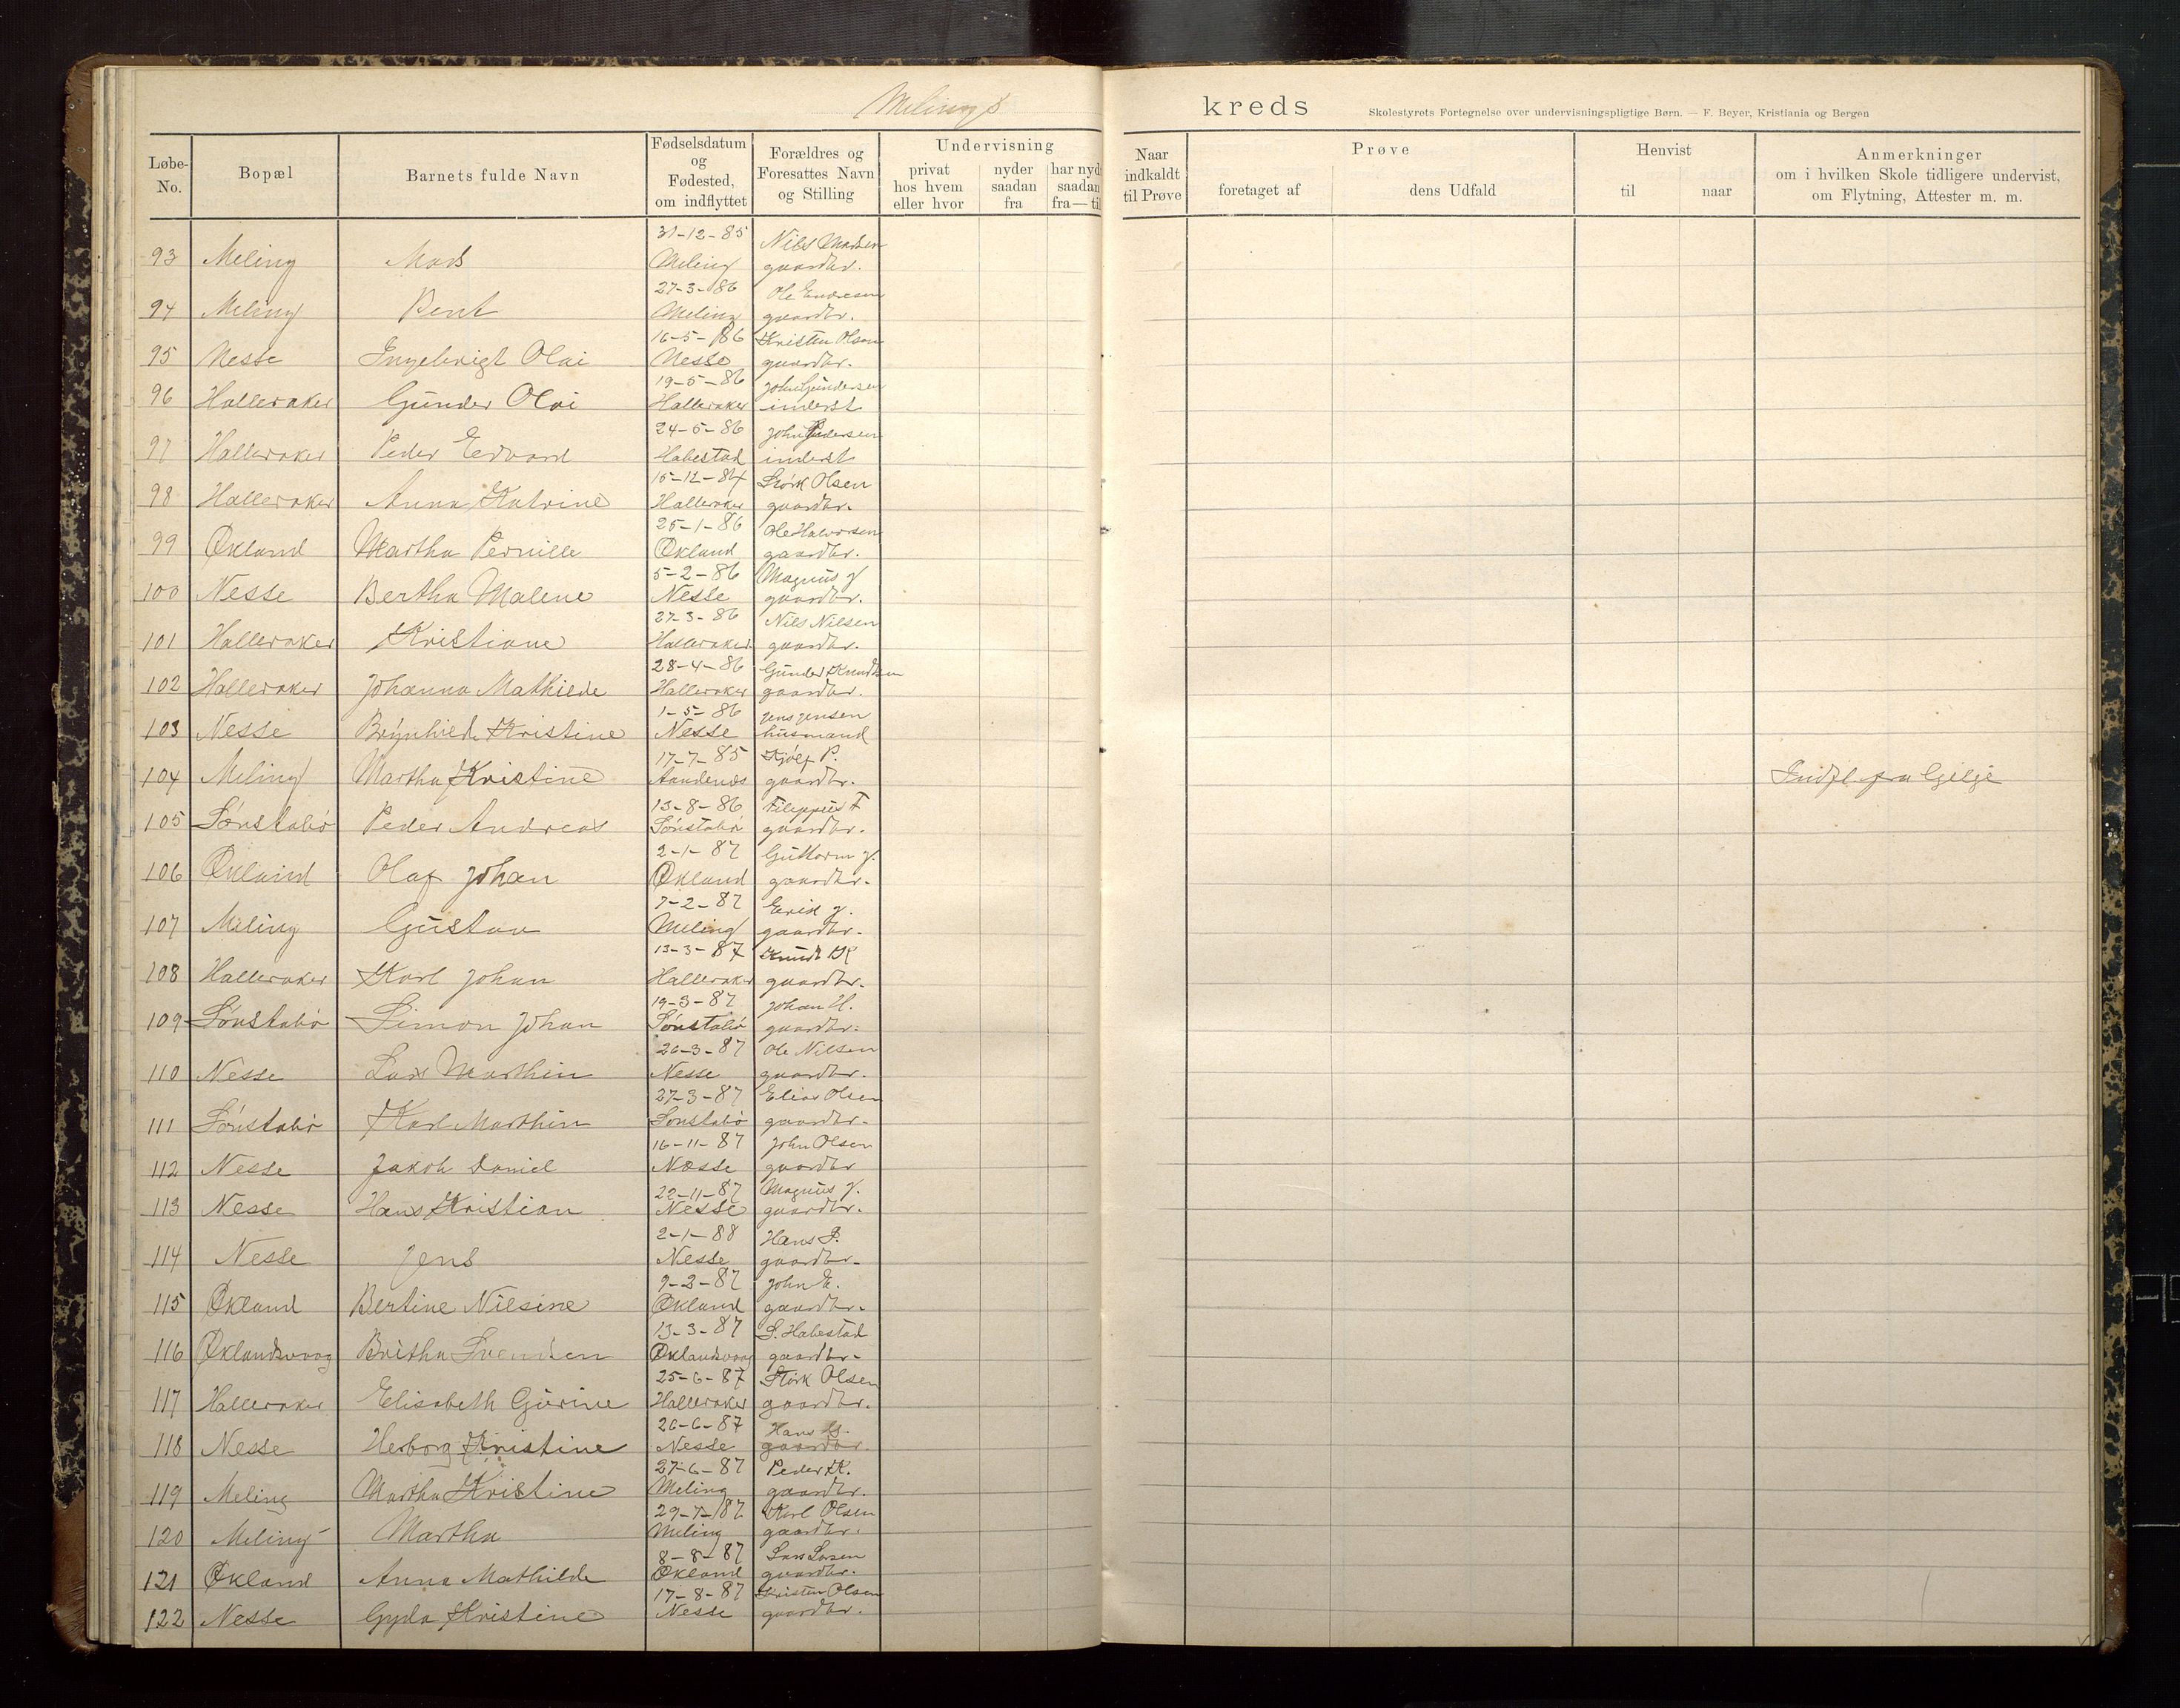 Melings kreds
Skolestyrets Fortegnelse over undervisningspligtige Børn. — F. Beyer, Kristiania og Bergen
Løbe-No. Bopæl Barnets fulde Navn Fødselsdatum og Fødested, om indflyttet Forældres og Foresattes Navn og Stilling Undervisning privat hos hvem eller hvor nyder saadan fra har nydt saadan fra — til Naar indkaldt til Prøve Prøve foretaget af dens Udfald Henvist til naar Anmerkninger om i hvilken Skole tidligere undervist, om Flytning, Attester m. m.
31-12-85 Nils Madsen
93 Meling Mads Meling gaardbr.
27-3-86 Ole Endresen
94 Meling Bent Meling gaardbr.
16-5-86 Kristen Olsen
95 Nesse Ingebrigt Olai Nesse gaardbr.
19-5-86 John Gundersen
96 Halleraker Gunder Olai Halleraker inderst
24-5-86 John Pedersen
97 Halleraker Peder Edvard Habestad inderst
15-12-84 Størk Olsen
98 Halleraker Anna Katrine Halleraker gaardbr.
25-1-86 Ole Halvorsen
99 Økland Martha Pernille Økland gaardbr.
5-2-86 Magnus J
100 Nesse Bertha Malene Nesse gaardbr.
27-3-86 Nils Nilsen
101 Halleraker Kristiane Halleraker gaardbr.
28-4-86 Gunder Knudsen
102 Halleraker Johanna Mathilde Halleraker gaardbr.
1-5-86 Jens Jensen
103 Nesse Brynhild Kristine Nesse husmand
17-7-85 P.
104 Meling Martha Kristine Aandenes gaardbr. Indfl. fra Gilje
13-8-86 Filippus F
105 Sønstabø Peder Andreas Sønstabø gaardbr.
2-1-87 Guttorm J.
106 Økland Olaf Johan Økland gaardbr.
7-2-87 Erik J.
107 Meling Gustav Meling gaardbr.
13-3-87 Knudt K
108 Halleraker Karl Johan Halleraker gaardbr.
19-3-87 Johan H.
109 Sønstabø Simon Johan Sønstabø gaardbr.
26-3-87 Ole Nilsen
110 Nesse Lars Marthin Nesse gaardbr.
27-3-87 Elias Olsen
111 Sønstabø Karl Marthin Sønstabø gaardbr.
16-11-87 John Olsen
112 Nesse Jakob Daniel Nesse gaardbr
22-11-87 Magnus J.
113 Nesse Hans Kristian Nesse gaardbr.
2-1-88 Hans S.
114 Nesse Jens Nesse gaardbr.
9-2-87 John E.
115 Økland Bertine Nilsine Økland gaardbr.
13-3-87 S. Habestad
116 Øklandsvaag Britha Svendsen Øklandsvaag gaardbr.
25-6-87 Størk Olsen
117 Halleraker Elisabeth Gurine Halleraker gaardbr.
26-6-87 Hans
118 Nesse Herborg Kristine Nesse gaardbr.
27-6-87 Peder K.
119 Meling Martha Kristine Meling gaardbr.
29-7-87 Karl Olsen
120 Meling Martha Meling gaardbr.
8-8-87 Lars Larsen
121 Økland Anna Mathilde Økland gaardbr.
17-8-87 Kristen Olsen
122 Nesse Gyda Kristine Nesse gaardbr.